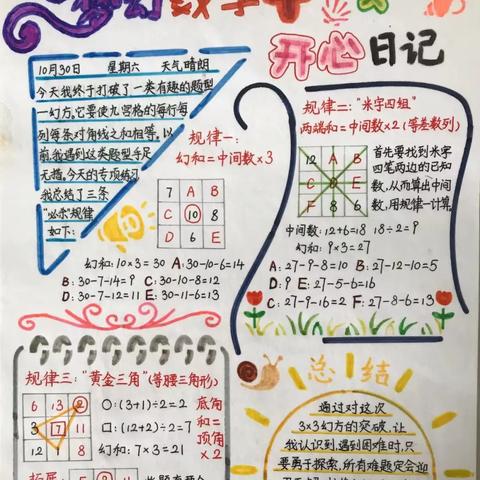 梦幻数学
开心日记
10月30日 星期六 天气晴朗
今天我终于打破了一类有趣的题型
一幻方,它要使九宫格的每行每
列每条对角线之和相等。以
前,我遇到这类题型手足
无措,今天的专项练习
我总结了三条
"必杀"规律
如下:
规律一:
幻和=中间数×3
7 A B
C 10 8
D 6 E
幻和:10×3=30 A:30-10-6=14
B:30-7-14=9 C:30-10-8=12
D:30-7-12=11 E:30-11-6=13
规律二:"米字四组"
两端和=中间数×2(等差数列)
12 A B
C D E
F 8 6
首先要找到米字
四笔两边的已知
数,从而算出中间
数,用规律一计算
中间数:12+6=18 18÷2=9
幻和:9×3=27
A:27-9-8=10 B:27-12-10=5
D:9 E:27-5-6=16
C:27-9-16=2 F:27-8-6=13
规律三:"黄金三角"(等腰三角形)
6 13 2
3 7 11
12 1 8
○:(3+1)÷2=2
□:(12+2)÷2=7
幻和:7×3=21
底角
和=
顶角
×2
总结
通过对这次
3×3幻方的突破,让
我认识到,遇到困难时,只
要勇于探索,所有难题定会迎